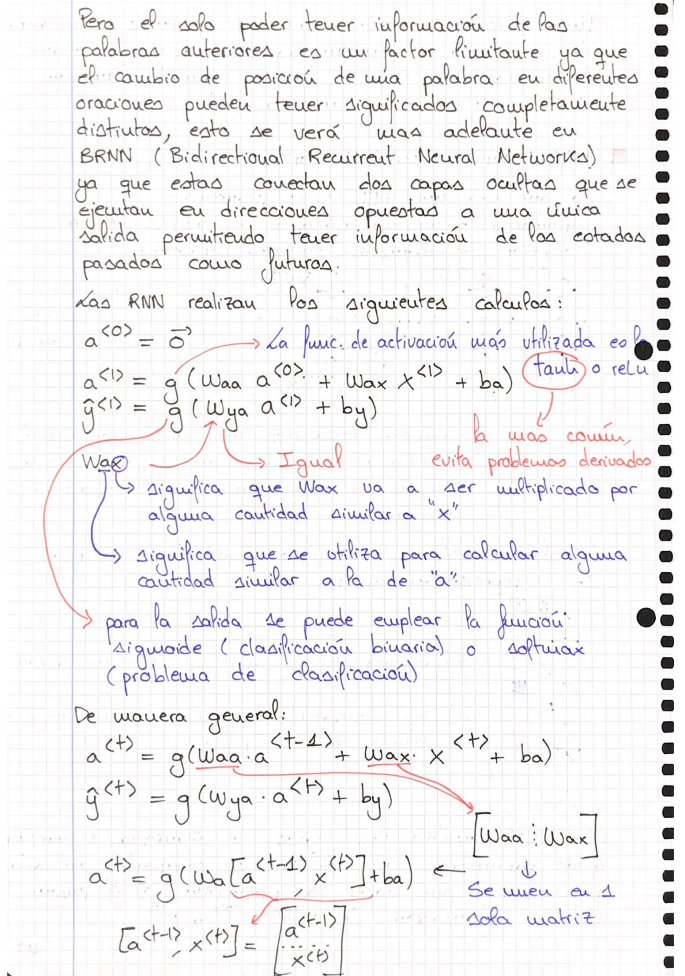 Pero el solo poder tener información de las
palabras anteriores es un factor limitante ya que
el cambio de posición de una palabra en diferentes
oraciones pueden tener significados completamente
distintos, esto se verá mas adelante en
BRNN (Bidirectional Recurrent Neural Networks)
ya que estas conectan dos capas ocultas que se
ejecutan en direcciones opuestas a una única
salida permitiendo tener información de los estados
pasados como futuros.
Las RNN realizan los siguientes calculos:
a<0> = 0⃗
La func. de activación más utilizada es la
tanh o relu
a<1> = g(Waa a<0> + Wax X<1> + ba)
ŷ<1> = g(Wya a<1> + by)
la mas común,
evita problemas derivados
Wax
Igual
significa que Wax va a ser multiplicado por
alguna cantidad similar a "x"
significa que se utiliza para calcular alguna
cantidad similar a la de "a".
para la salida se puede emplear la función
sigmoide (clasificación binaria) o softmax
(problema de clasificación)
De manera general:
a<t> = g(Waa·a<t-1> + Wax· X<t> + ba)
ŷ<t> = g(Wya·a<t> + by)
[Waa ⋮ Wax]
a<t> = g(Wa[a<t-1>, x<t>]+ba) ←
Se unen en 1
sola matriz
[a<t-1>, x<t>] = [a<t-1>
x<t>]